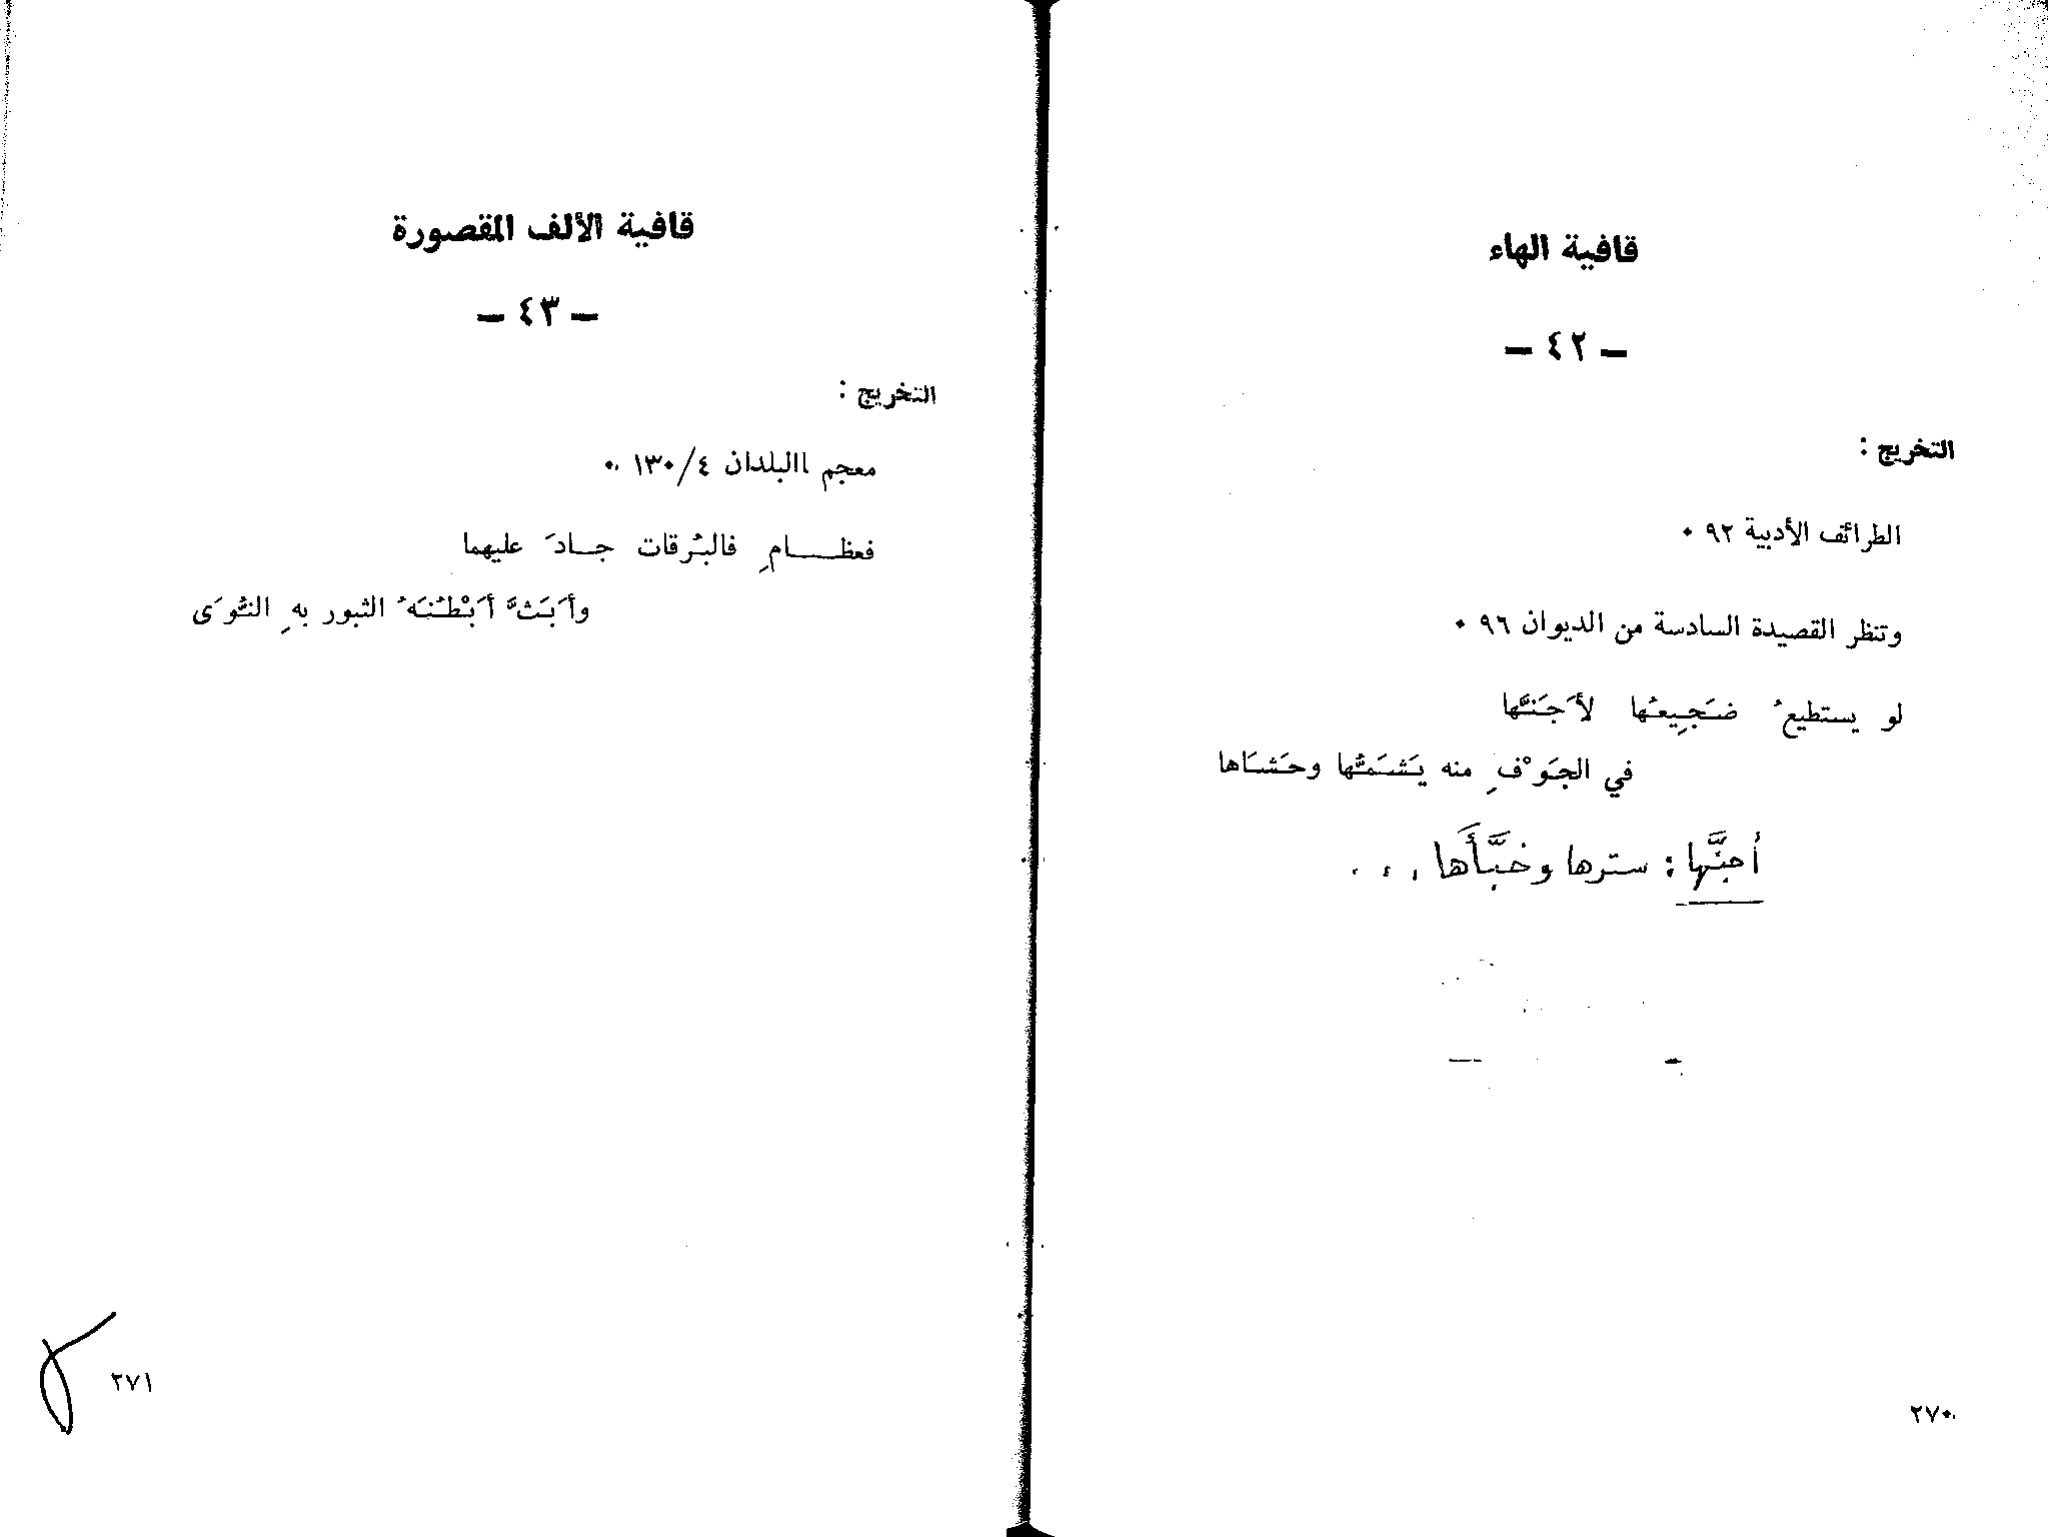 قافية الهاء
– ٤٢ –
التخريج :
الطرائف الأدبية ٩٢ ٠
وتنظر القصيدة السادسة من الديوان ٩٦ ٠
لو يستطيعُ ضَجِيعُها لأَجَنَّها
في الجَوْفِ منه يَشَمُّها وحَشَاها
أجنَّها : سترها وخبَّأَها . . .
٢٧٠
قافية الألف المقصورة
– ٤٣ –
التخريج :
معجم االبلدان ٤/١٣٠ ٠
فعظــــامِ فالبُرقات جــادَ عليهما
وأَبَثَّ أَبْطُنَهُ الثبور بهِ النُّوَى
٢٧١